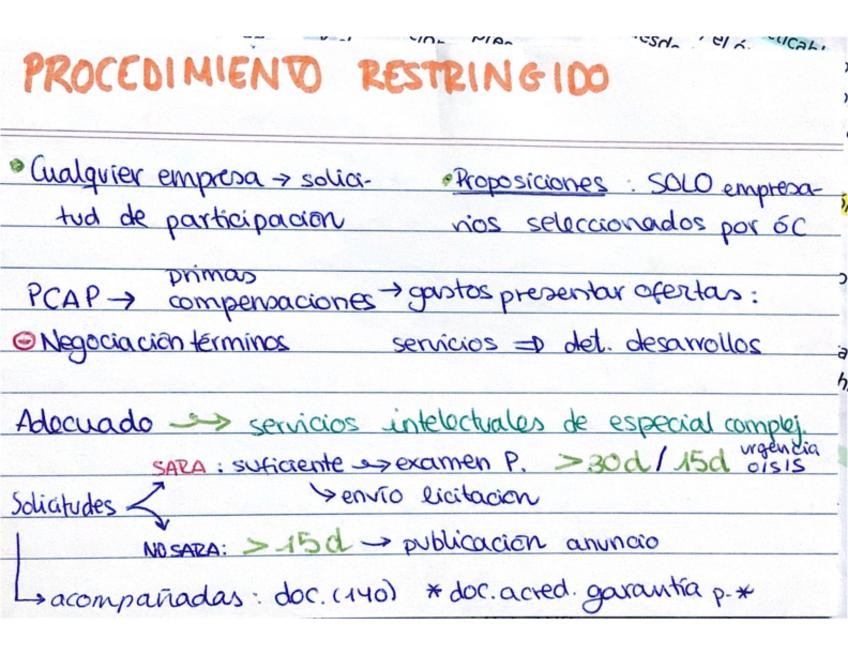 PROCEDIMIENTO RESTRINGIDO
• Cualquier empresa → solici-
tud de participación
• Proposiciones : SOLO empresa-
rios seleccionados por ÓC
PCAP → primas
compensaciones → gastos presentar ofertas :
⊖ Negociación términos
servicios ⇒ det. desarrollos
Adecuado → servicios intelectuales de especial complej.
Solicitudes
SARA : suficiente → examen P. >30d / 15d urgencia
→ envío licitación
NO SARA: >15d → publicación anuncio
→ acompañadas : doc. (140) * doc. acred. garantía p. *